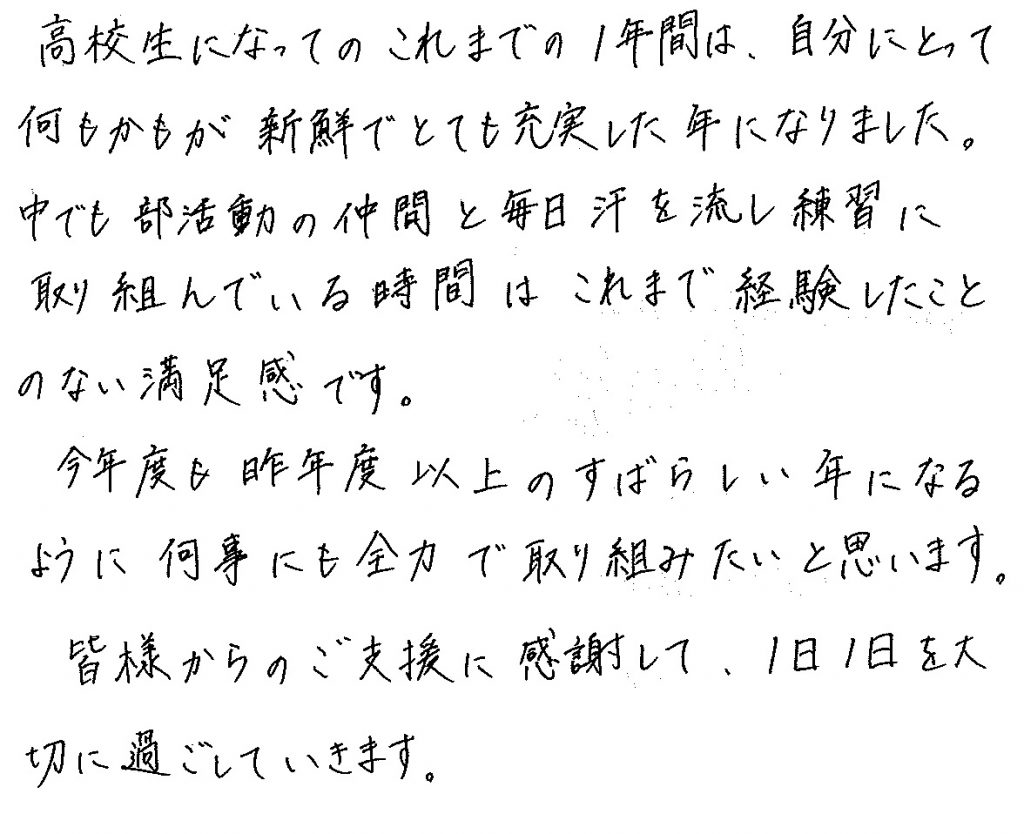 高校生になってのこれまでの1年間は、自分にとって
何もかもが新鮮でとても充実した年になりました。
中でも部活動の仲間と毎日汗を流し練習に
取り組んでいる時間はこれまで経験したこと
のない満足感です。
今年度も昨年度以上のすばらしい年になる
ように何事にも全力で取り組みたいと思います。
皆様からのご支援に感謝して、1日1日を大
切に過ごしていきます。